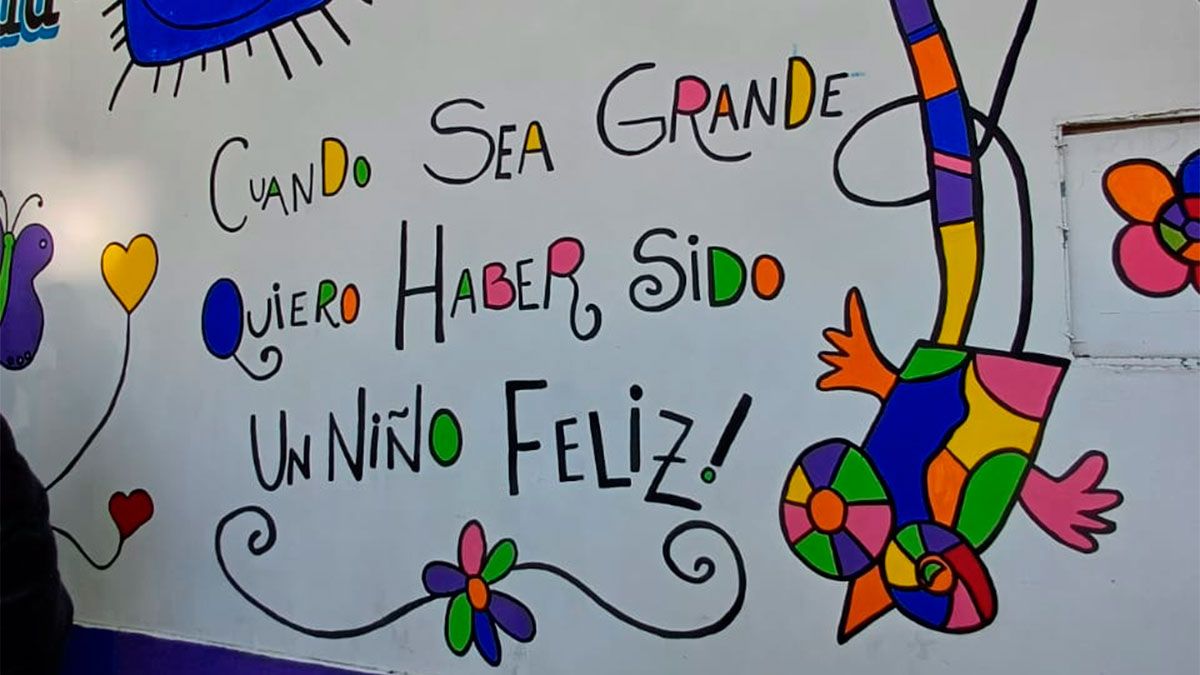 CUANDO SEA GRANDE
QUIERO HABER SIDO
UN NIÑO FELIZ!